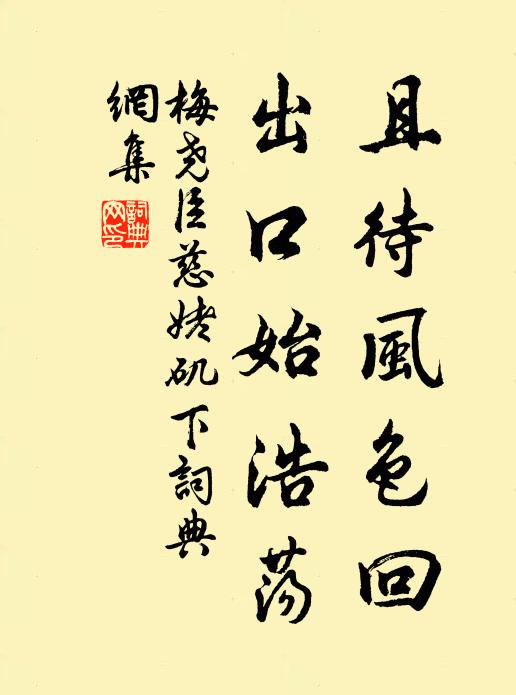 且待風色回
出口始浩蕩
梅尧臣慈姥矶下詞典
網集
詞典
网印